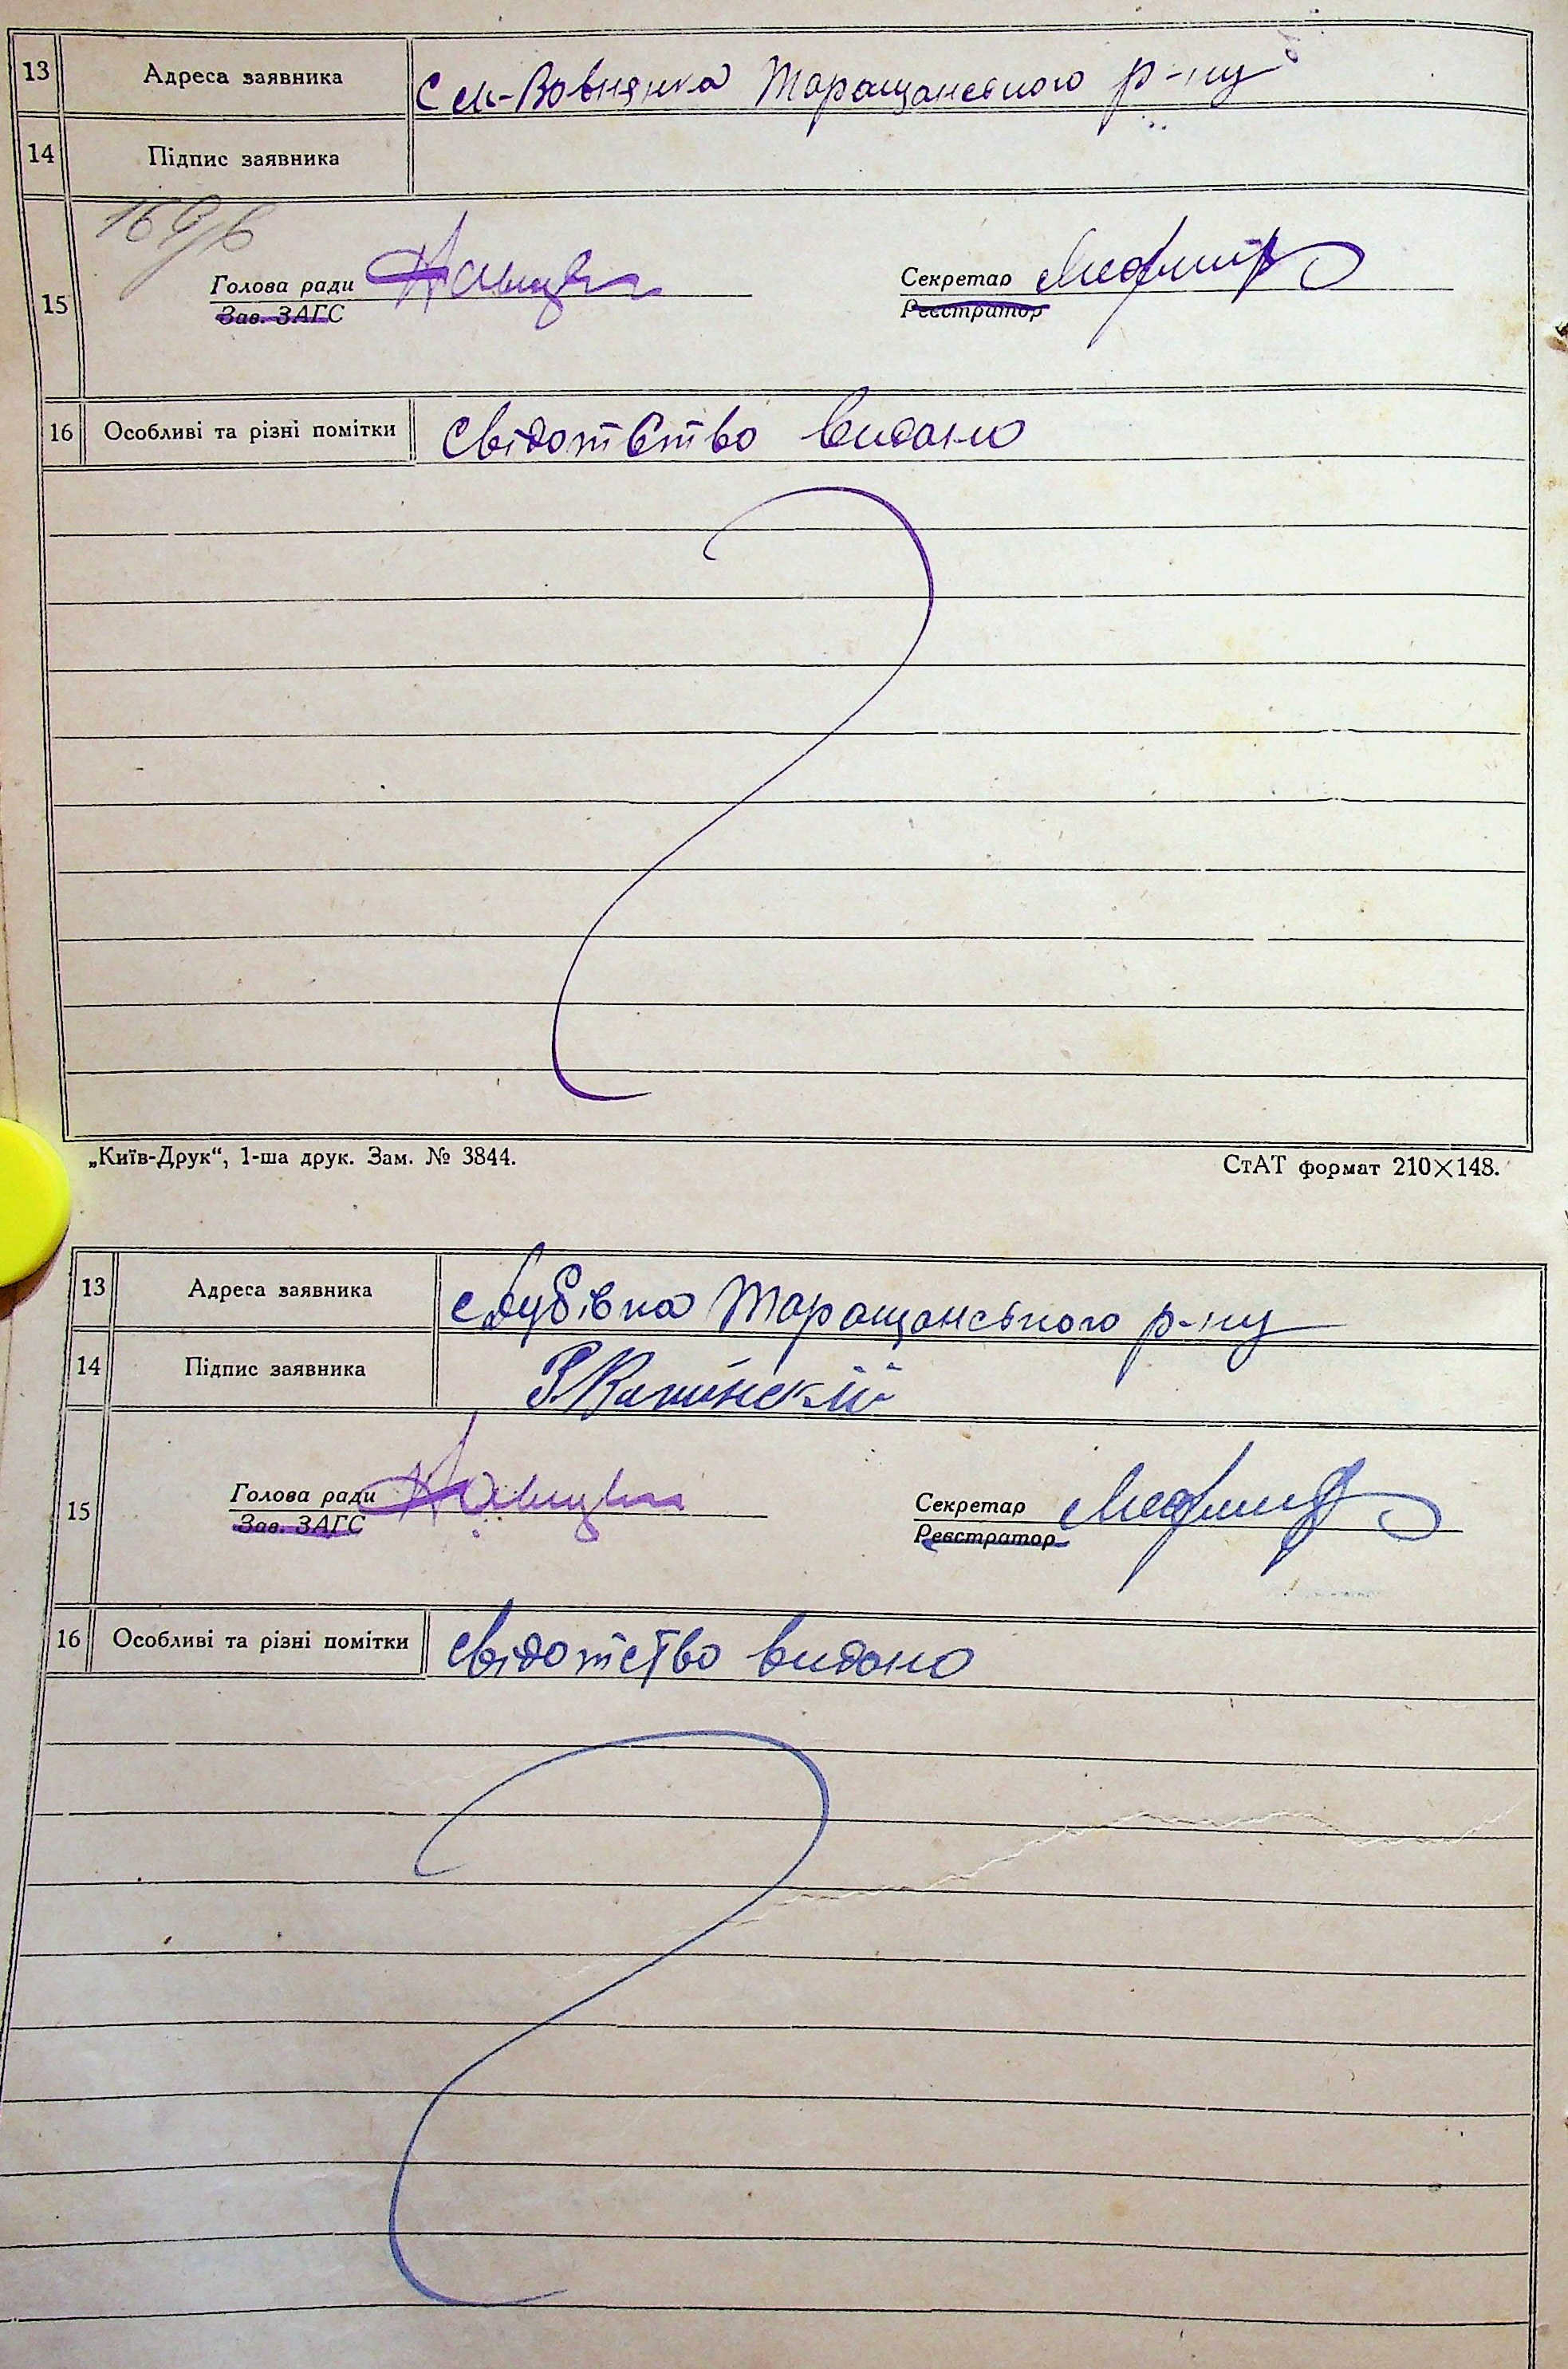 13 Адреса заявника С м-Вовнянка Таращанського р-ну
14 Підпис заявника
15
Голова ради Секретар
Зав. ЗАГС Реєстратор
16 Особливі та різні помітки Свідотство видано
„Київ-Друк“, 1-ша друк. Зам. № 3844. СтАТ формат 210×148.
13 Адреса заявника с Дубівка Таращанського р-ну
14 Підпис заявника
15
Голова ради Секретар
Зав. ЗАГС Реєстратор
16 Особливі та різні помітки свідотство видано